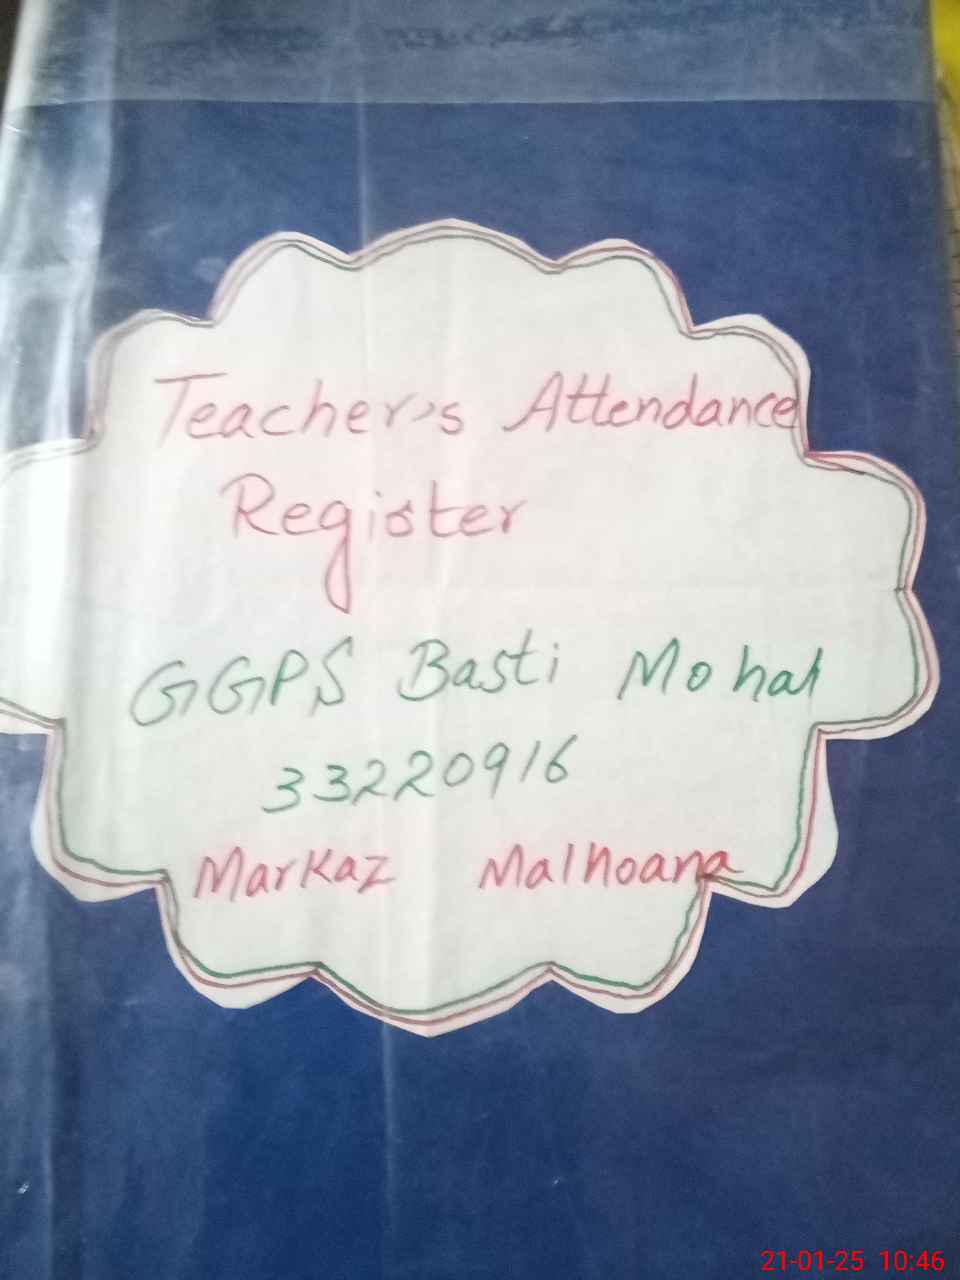 Teacher's Attendance
Register
GGPS Basti Mohal
33220916
Markaz Malhoana
21-01-25 10:46